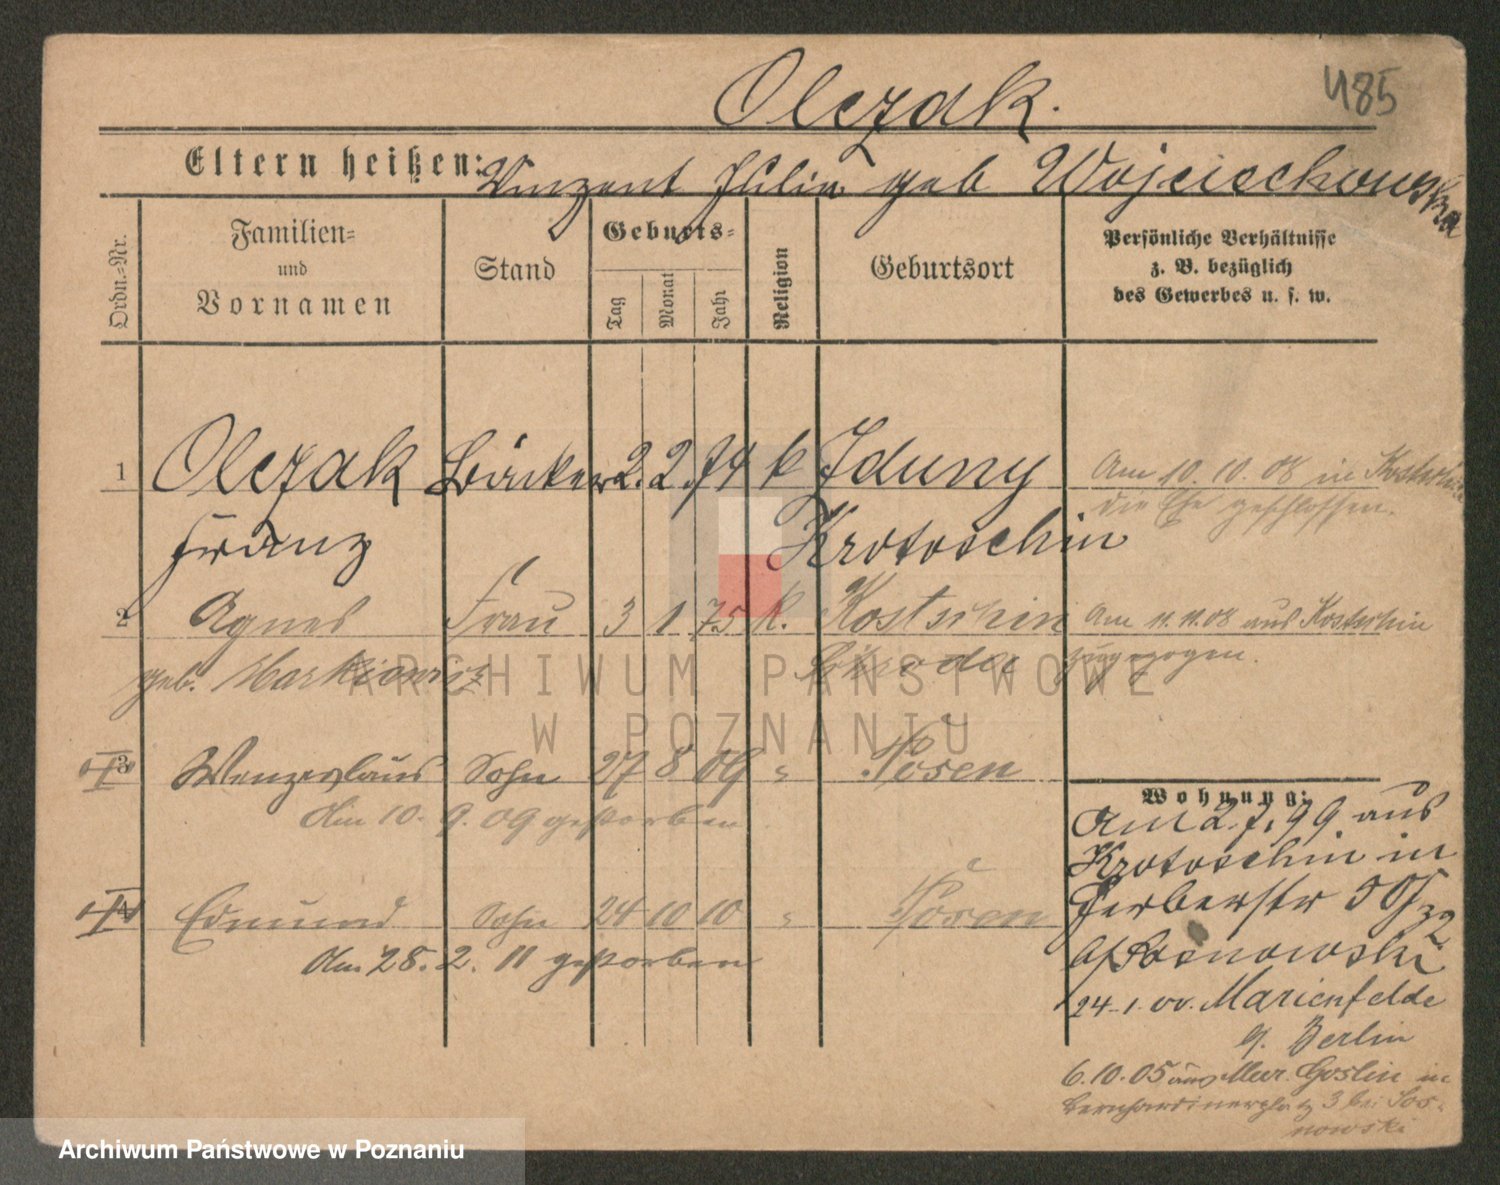 Olczak.
485
Eltern heißen: Vinzent Julia geb Wojciechowska
Ordn.-Nr.
Familien- und Vornamen
Stand
Geburts-
Tag
Monat
Jahr
Religion
Geburtsort
Persönliche Verhältnisse
z. B. bezüglich
des Gewerbes u. s. w.
1 Olczak Bäcker 2. 2. 74 k Iduny
Franz Krotoschin
Am 10. 10. 08 in Kostschin
die Ehe geschlossen.
2 Agnes Frau 3 1 75 k. Kostschin
geb. Markiewicz Schroda
Am 11. 11. 08 aus Kostschin
zugezogen.
3 Wenzeslaus Sohn 27 8 09 " Posen
Am 10. 9. 09 gestorben
4 Edmund Sohn 24 10 10 " Posen
Am 28. 2. 11 gestorben
Wohnung:
Am 2. 7. 99. aus
Krotoschin in
Gerberstr
Sosnowski
24.1.00. Marienfelde
b. Berlin
6.10.05 aus Mur. Goslin in
Bernhardinerplatz 3 bei Sos-
nowski
ARCHIWUM PAŃSTWOWE
W POZNANIU
Archiwum Państwowe w Poznaniu